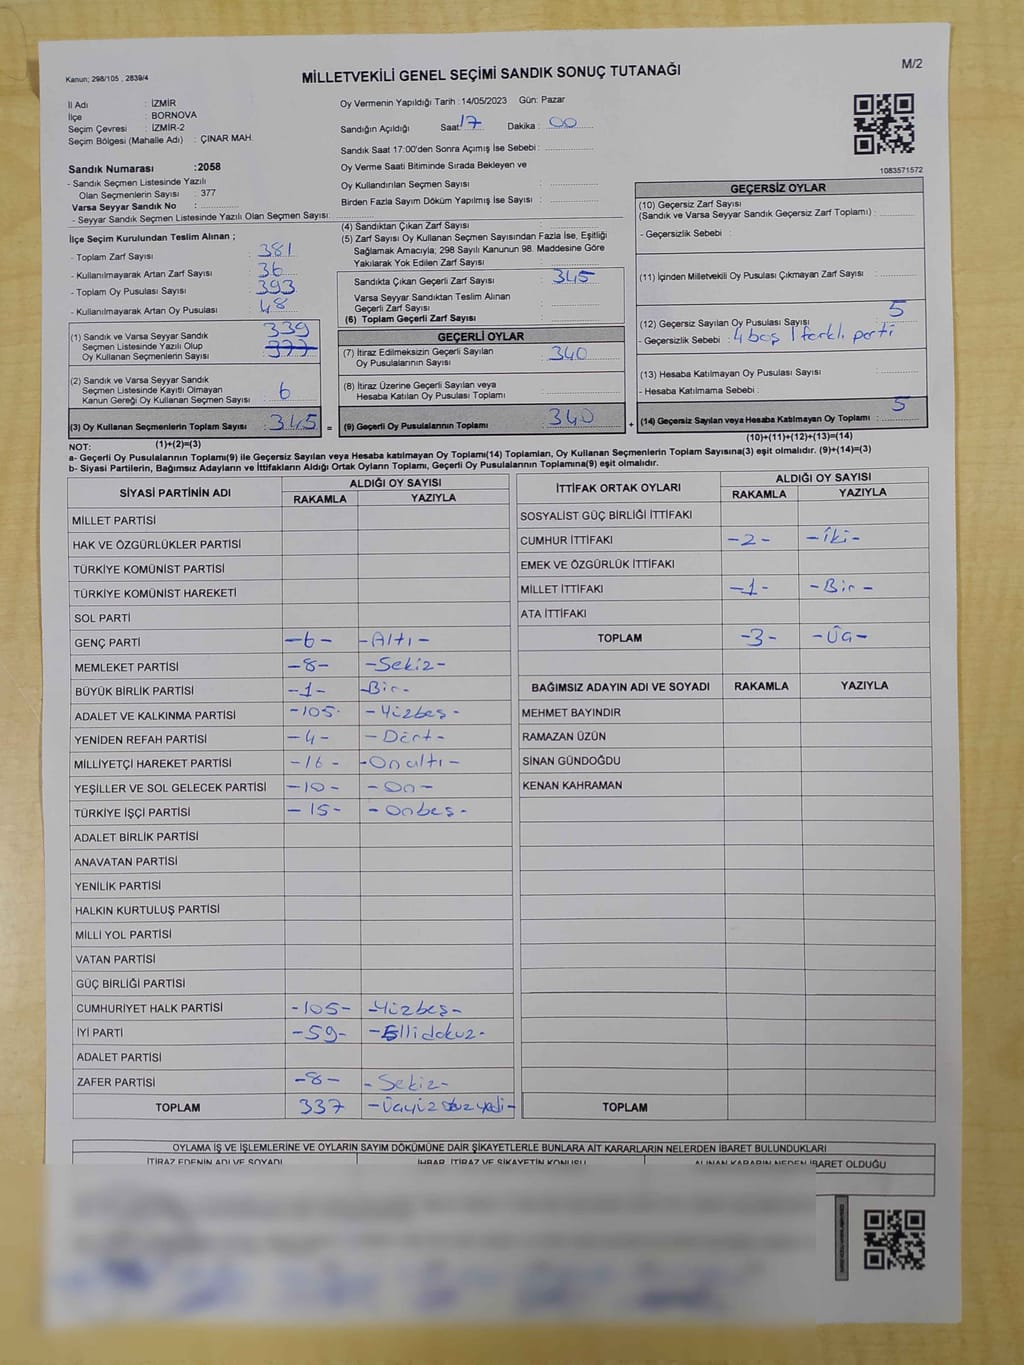 Kanun; 298/105 , 2839/4
MİLLETVEKİLİ GENEL SEÇİMİ SANDIK SONUÇ TUTANAĞI
M/2
İl Adı : İZMİR
İlçe : BORNOVA
Seçim Çevresi : İZMİR-2
Seçim Bölgesi (Mahalle Adı) : ÇINAR MAH.
Oy Vermenin Yapıldığı Tarih : 14/05/2023 Gün: Pazar
Sandığın Açıldığı Saat: 17 Dakika : 00
Sandık Saat 17:00'den Sonra Açımış İse Sebebi :
Sandık Numarası :2058
- Sandık Seçmen Listesinde Yazılı
Olan Seçmenlerin Sayısı : 377
Varsa Seyyar Sandık No :
- Seyyar Sandık Seçmen Listesinde Yazılı Olan Seçmen Sayısı:
Oy Verme Saati Bitiminde Sırada Bekleyen ve
Oy Kullandırılan Seçmen Sayısı :
Birden Fazla Sayım Döküm Yapılmış İse Sayısı :
1083571572
İlçe Seçim Kurulundan Teslim Alınan ;
- Toplam Zarf Sayısı : 381
- Kullanılmayarak Artan Zarf Sayısı : 36
- Toplam Oy Pusulası Sayısı : 393
- Kullanılmayarak Artan Oy Pusulası : 48
(1) Sandık ve Varsa Seyyar Sandık 339
Seçmen Listesinde Yazılı Olup
Oy Kullanan Seçmenlerin Sayısı : 377
(2) Sandık ve Varsa Seyyar Sandık
Seçmen Listesinde Kayıtlı Olmayan
Kanun Gereği Oy Kullanan Seçmen Sayısı : 6
(3) Oy Kullanan Seçmenlerin Toplam Sayısı : 345 =
(4) Sandıktan Çıkan Zarf Sayısı :
(5) Zarf Sayısı Oy Kullanan Seçmen Sayısından Fazla İse, Eşitliği
Sağlamak Amacıyla; 298 Sayılı Kanunun 98. Maddesine Göre
Yakılarak Yok Edilen Zarf Sayısı :
Sandıkta Çıkan Geçerli Zarf Sayısı : 345
Varsa Seyyar Sandıktan Teslim Alınan
Geçerli Zarf Sayısı :
(6) Toplam Geçerli Zarf Sayısı :
GEÇERLİ OYLAR
(7) İtiraz Edilmeksizin Geçerli Sayılan
Oy Pusulalarının Sayısı : 340
(8) İtiraz Üzerine Geçerli Sayılan veya
Hesaba Katılan Oy Pusulası Toplamı :
(9) Geçerli Oy Pusulalarının Toplamı : 340 +
GEÇERSİZ OYLAR
(10) Geçersiz Zarf Sayısı
(Sandık ve Varsa Seyyar Sandık Geçersiz Zarf Toplamı) :
- Geçersizlik Sebebi :
(11) İçinden Milletvekili Oy Pusulası Çıkmayan Zarf Sayısı :
(12) Geçersiz Sayılan Oy Pusulası Sayısı : 5
- Geçersizlik Sebebi : 4 boş 1 farklı parti
(13) Hesaba Katılmayan Oy Pusulası Sayısı :
- Hesaba Katılmama Sebebi :
(14) Geçersiz Sayılan veya Hesaba Katılmayan Oy Toplamı : 5
NOT: (1)+(2)=(3) (10)+(11)+(12)+(13)=(14)
a- Geçerli Oy Pusulalarının Toplamı(9) ile Geçersiz Sayılan veya Hesaba katılmayan Oy Toplamı(14) Toplamları, Oy Kullanan Seçmenlerin Toplam Sayısına(3) eşit olmalıdır. (9)+(14)=(3)
b- Siyasi Partilerin, Bağımsız Adayların ve İttifakların Aldığı Ortak Oyların Toplamı, Geçerli Oy Pusulalarının Toplamına(9) eşit olmalıdır.
SİYASİ PARTİNİN ADI ALDIĞI OY SAYISI
RAKAMLA YAZIYLA
MİLLET PARTİSİ
HAK VE ÖZGÜRLÜKLER PARTİSİ
TÜRKİYE KOMÜNİST PARTİSİ
TÜRKİYE KOMÜNİST HAREKETİ
SOL PARTİ
GENÇ PARTİ -6- -Altı-
MEMLEKET PARTİSİ -8- -Sekiz-
BÜYÜK BİRLİK PARTİSİ -1- -Bir-
ADALET VE KALKINMA PARTİSİ -105- -Yüzbeş-
YENİDEN REFAH PARTİSİ -4- -Dört-
MİLLİYETÇİ HAREKET PARTİSİ -16- -Onaltı-
YEŞİLLER VE SOL GELECEK PARTİSİ -10- -On-
TÜRKİYE İŞÇİ PARTİSİ -15- -Onbeş-
ADALET BİRLİK PARTİSİ
ANAVATAN PARTİSİ
YENİLİK PARTİSİ
HALKIN KURTULUŞ PARTİSİ
MİLLİ YOL PARTİSİ
VATAN PARTİSİ
GÜÇ BİRLİĞİ PARTİSİ
CUMHURİYET HALK PARTİSİ -105- -Yüzbeş-
İYİ PARTİ -59- -Ellidokuz-
ADALET PARTİSİ
ZAFER PARTİSİ -8- -Sekiz-
TOPLAM 337
İTTİFAK ORTAK OYLARI ALDIĞI OY SAYISI
RAKAMLA YAZIYLA
SOSYALİST GÜÇ BİRLİĞİ İTTİFAKI
CUMHUR İTTİFAKI -2- -İki-
EMEK VE ÖZGÜRLÜK İTTİFAKI
MİLLET İTTİFAKI -1- -Bir-
ATA İTTİFAKI
TOPLAM -3- -Üç-
BAĞIMSIZ ADAYIN ADI VE SOYADI RAKAMLA YAZIYLA
MEHMET BAYINDIR
RAMAZAN ÜZÜN
SİNAN GÜNDOĞDU
KENAN KAHRAMAN
TOPLAM
OYLAMA İŞ VE İŞLEMLERİNE VE OYLARIN SAYIM DÖKÜMÜNE DAİR ŞİKAYETLERLE BUNLARA AİT KARARLARIN NELERDEN İBARET BULUNDUKLARI
İTİRAZ EDENİN ADI VE SOYADI İHBAR, İTİRAZ VE ŞİKAYETİN KONUSU ALINAN KARARIN NEDEN İBARET OLDUĞU